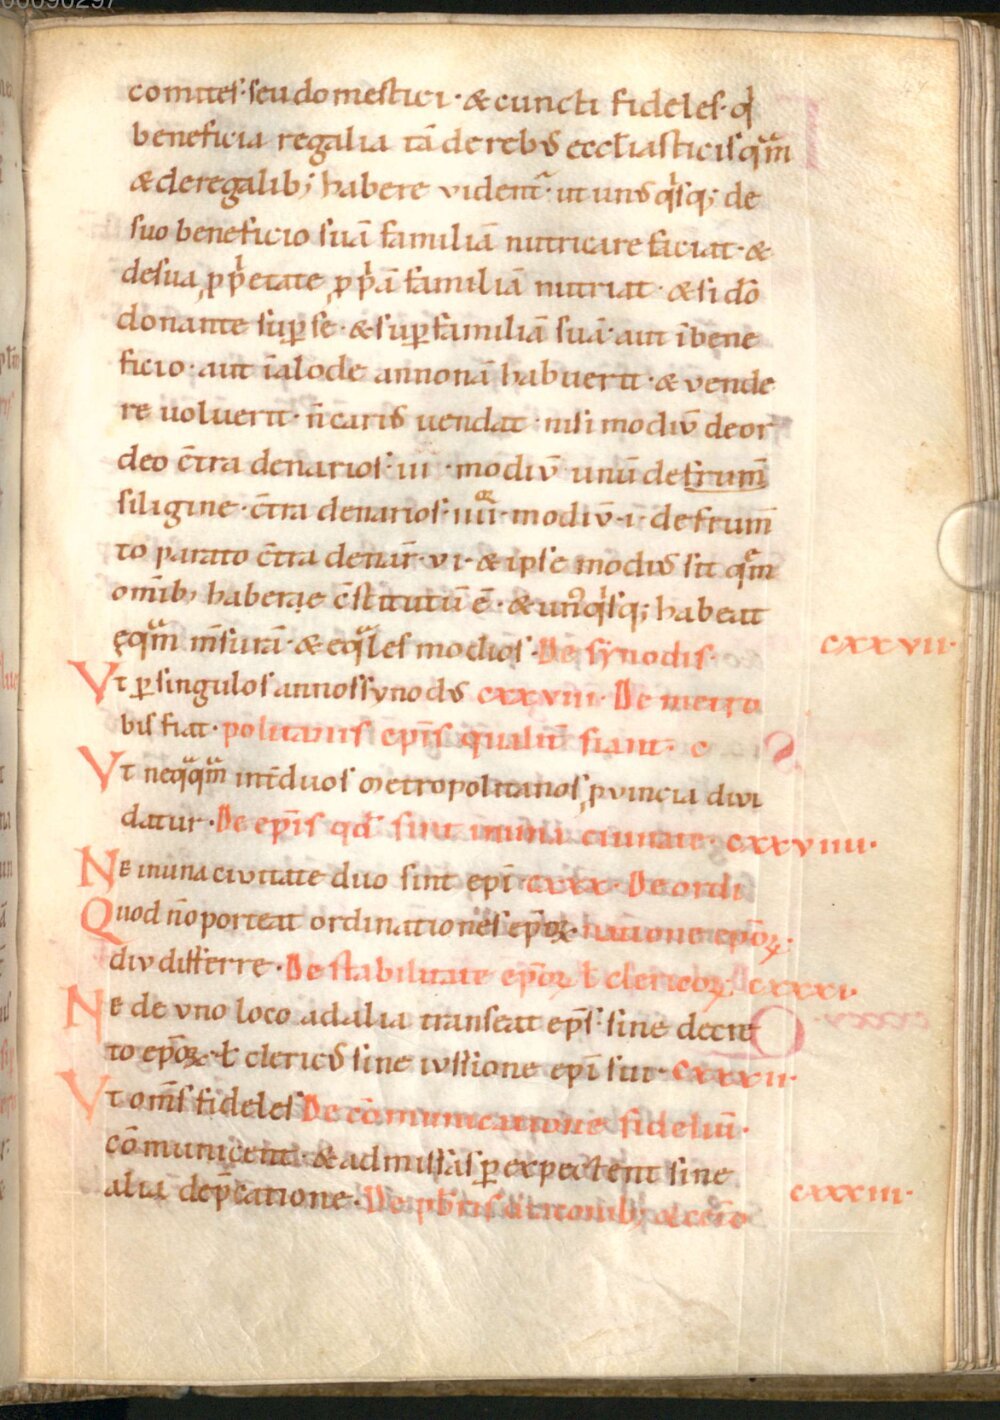 comites· seu domestici· & cuncti fideles· q
beneficia regalia tā de reb; eccl̄iasticis quā
& de regalib; habere vident· ut un quisq; de
suo beneficio suā familiā nutricare faciat· &
de sua ꝓprietate ꝓpriā familiā nutriat· & si dō
donante suꝑ se· & suꝑ familiā suā· aut ī bene
ficio· aut ī alode annonā habuerit· & vende
re uoluerit· n̄ carius uendat· nisi modiū de or
deo c̄tra denarios· iii· modiū unū de frum̄
siligine· c̄tra denarios· iiii· modiū· i· de frum̄
to parato c̄tra denar̄· vi· & ipse modius sit quē
om̄ib; habere c̄stitutū ē· & unqsq; habeat
ęquam m̄surā· & eqles modios· De synodis· cxxvii·
Vt ꝑ singulos annos synodus cxxviii· De metro
bis fiat· politanis ep̄is qualit̄ fiant·
Vt nequaquam int̄ duos metropolitanos ꝓvincia divi
datur· De ep̄is qd̄ sint in una ciuitate· cxxviiii·
Ne in una civitate duo sint ep̄i· cxxx· De ordi
Quod n̄ oporteat ordinationes ep̄oꝝ· natione ep̄oꝝ·
div differre· De stabilitate ep̄oꝝ ł clericoꝝ· cxxxi·
Ne de vno loco ad alia transeat ep̄s· sine decre
to ep̄oꝝ· ł clericus sine iussione ep̄i sui· cxxxii·
Vt om̄s fideles De cōmunicatione fideliū·
cōmunicent· & ad missas ꝑexpectent sine
alia dep̄catione· De p̄bris diaconib; cxxxiii·